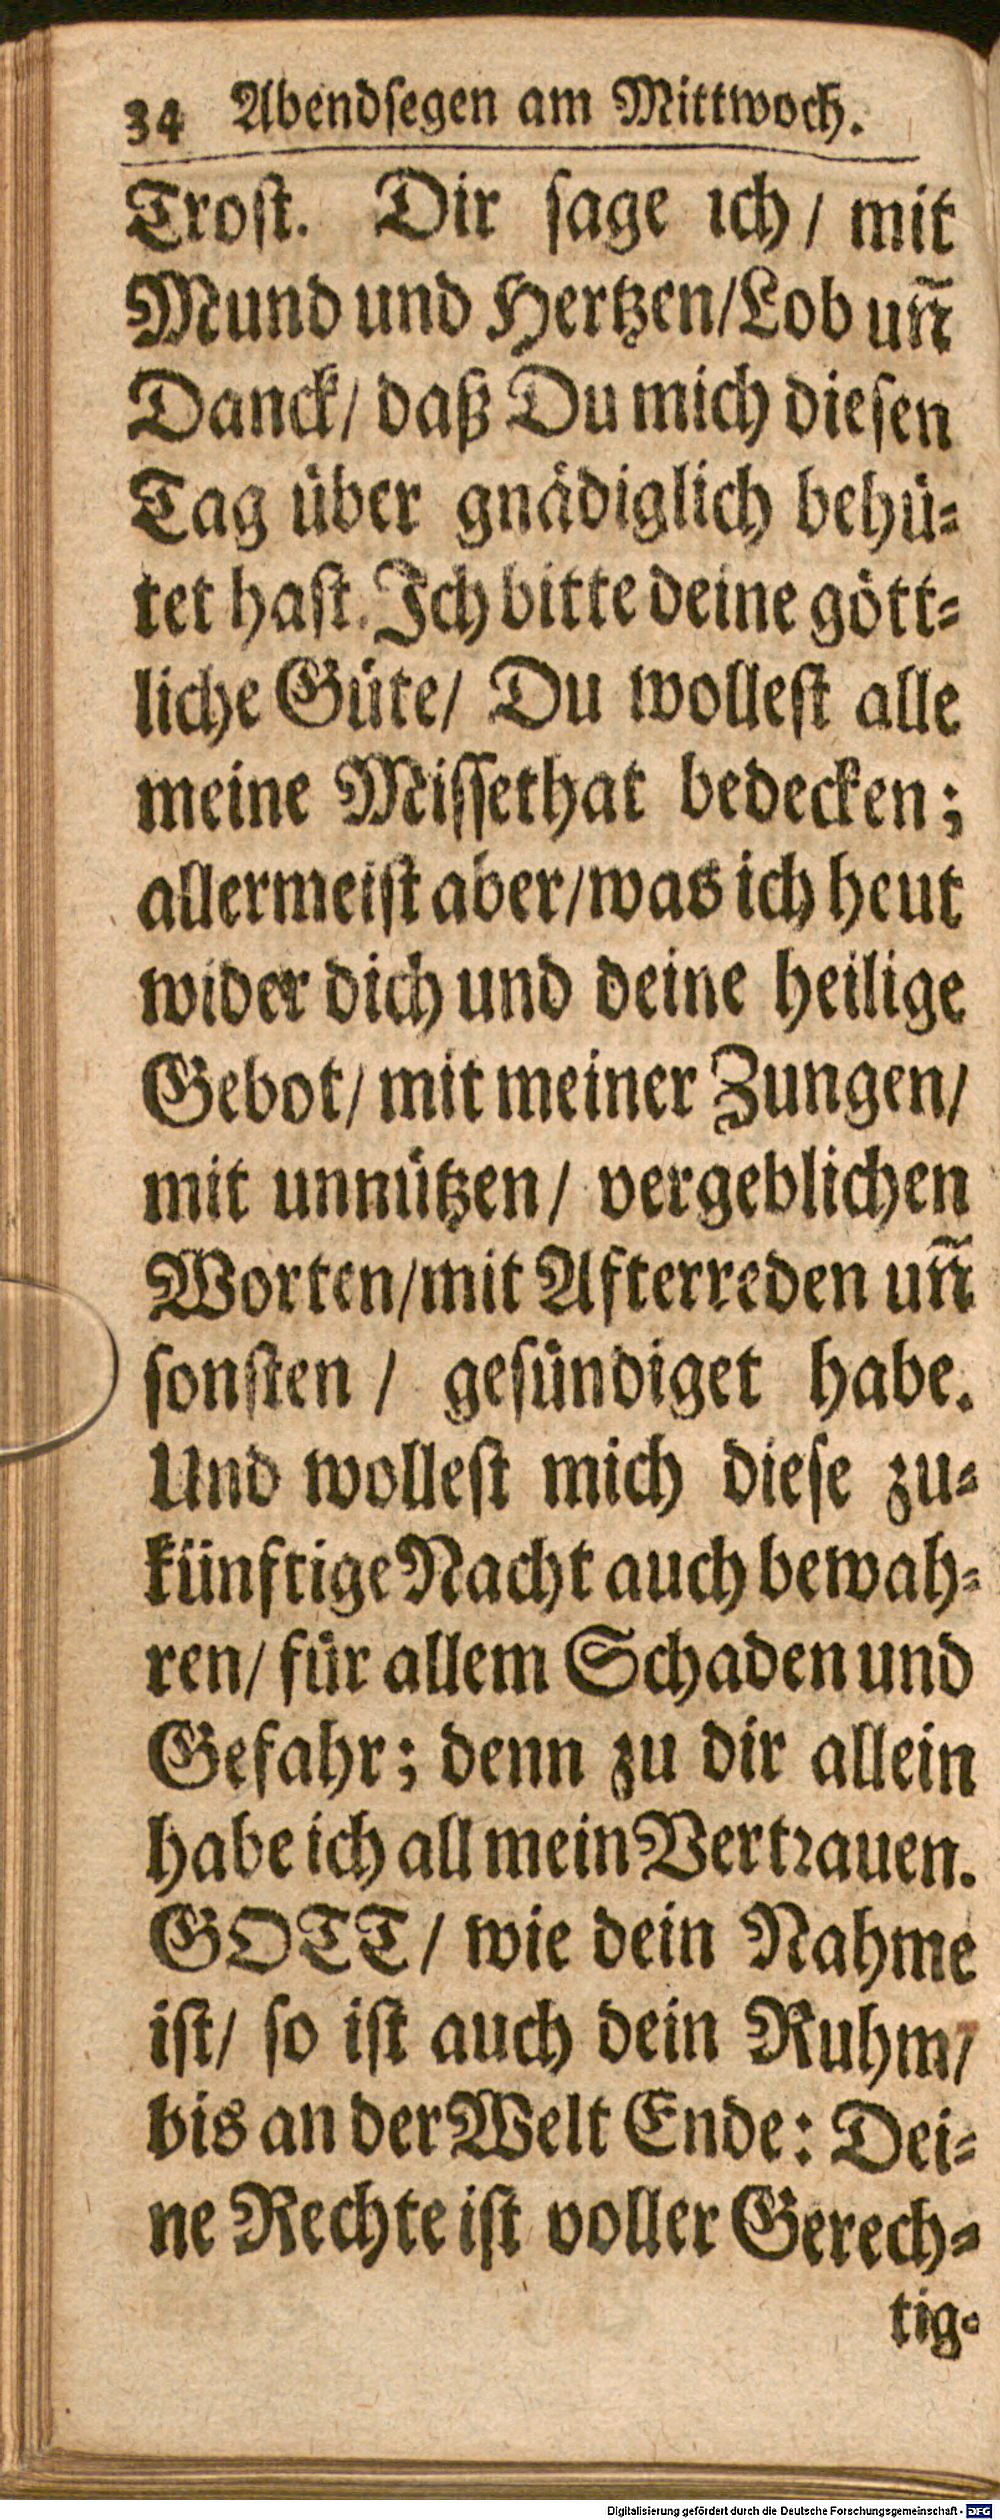 34 Abendſegen am Mittwoch.
Troſt. Dir ſage ich / mit
Mund und Hertzen/Lob uñ
Danck/ daß Du mich dieſen
Tag über gnädiglich behü-
tet haſt. Ich bitte deine gött-
liche Güte/ Du wolleſt alle
meine Miſſethat bedecken;
allermeiſt aber/was ich heut
wider dich und deine heilige
Gebot/ mit meiner Zungen/
mit unnützen/ vergeblichen
Worten/mit Afterreden uñ
ſonſten / geſündiget habe.
Und wolleſt mich dieſe zu-
künftige Nacht auch bewah-
ren/ für allem Schaden und
Gefahr; denn zu dir allein
habe ich all mein Vertꝛauen.
GOTT/ wie dein Nahme
iſt/ ſo iſt auch dein Ruhm/
bis an der Welt Ende: Dei-
ne Rechte iſt voller Gerech-
tig-
Digitalisierung gefördert durch die Deutsche Forschungsgemeinschaft - DFG